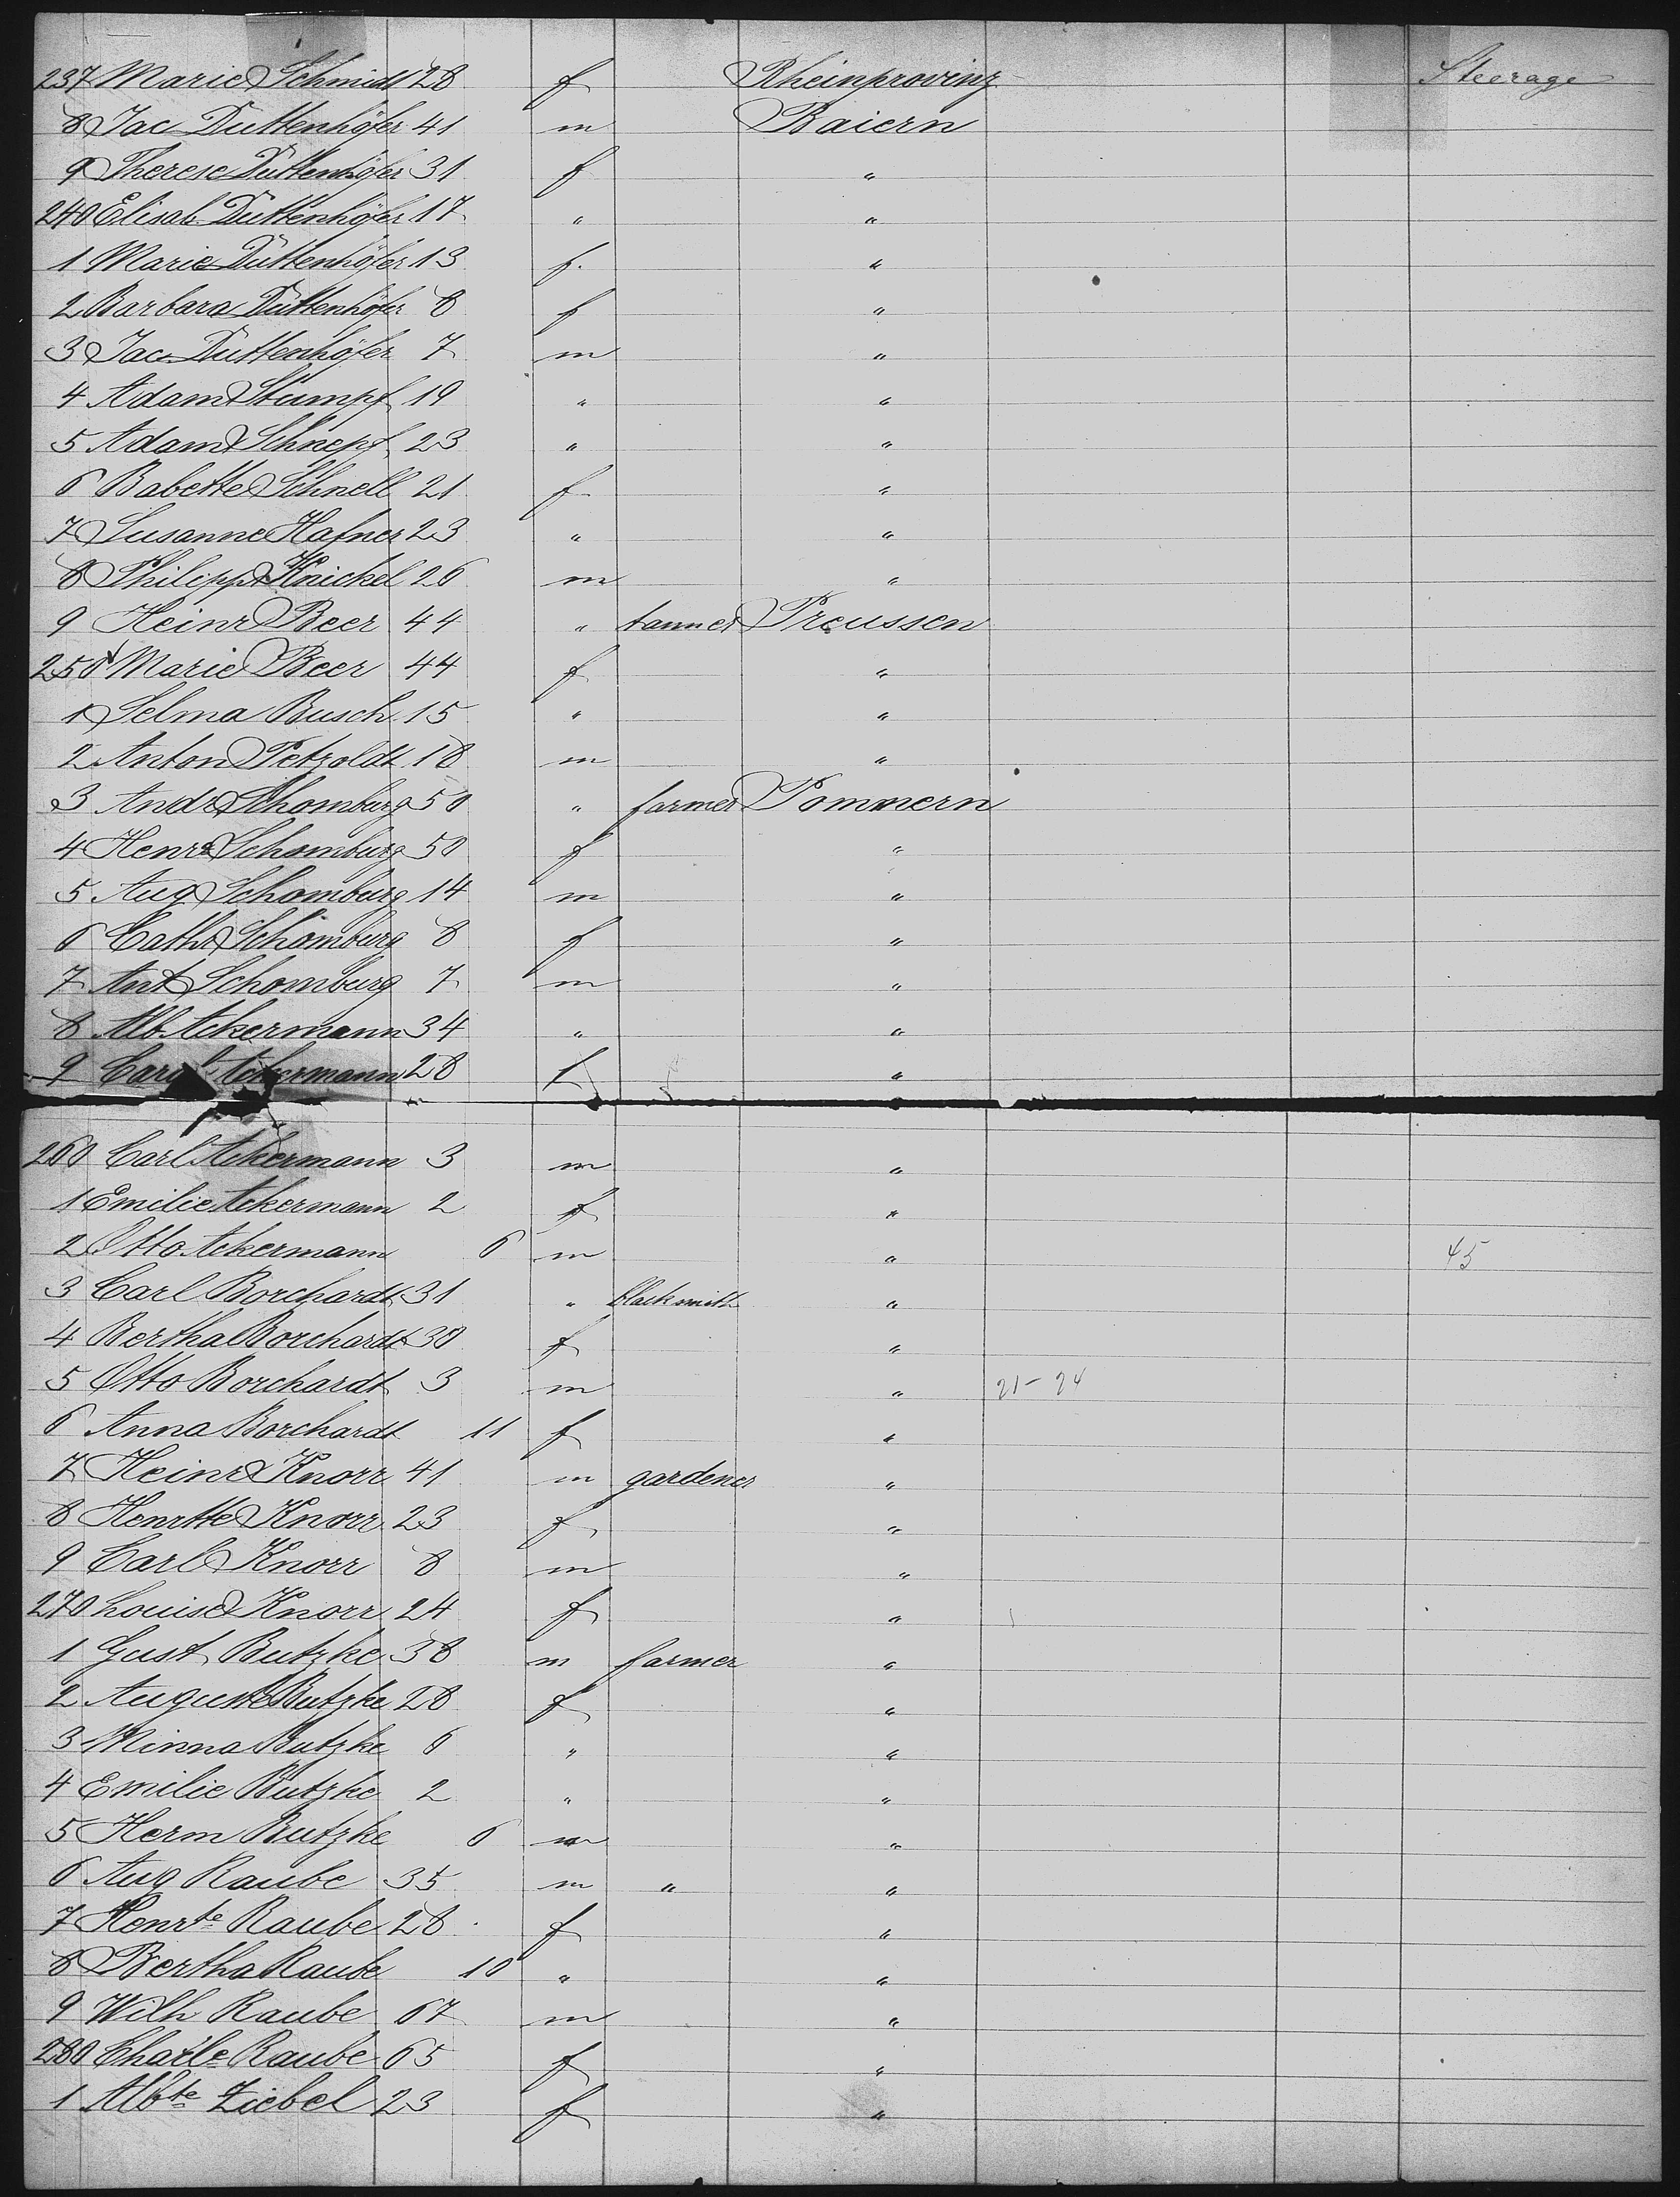 237 Marie Schmidt 28 f Rheinprovinz Steerage
8 Jac Duttenhöfer 41 m Baiern
9 Therese Duttenhöfer 31 f "
240 Elisab Duttenhöfer 17 " "
1 Marie Duttenhöfer 13 f. "
2 Barbara Duttenhöfer 8 f "
3 Jac Duttenhöfer 7 m "
4 Adam Stumpf 19 " "
5 Adam Schnepf 23 " "
6 Babette Schnell 21 f "
7 Susanne Hafner 23 " "
8 Philipp Knickel 26 m "
9 Heinr Beer 44 " tanner Preussen
250 Marie Beer 44 f "
1 Selma Busch 15 " "
2 Anton Petzoldt 18 m "
3 Andr Schomburg 50 " farmer Pommern
4 Henr Schomburg 50 f "
5 Aug Schomburg 14 m "
6 Cath Schomburg 8 f "
7 Ant Schomburg 7 m "
8 Alb Ackermann 34 " "
9 Ackermann 28 f "
260 Carl Ackermann 3 m "
1 Emilie Ackermann 2 f "
2 Otto Ackermann 6 m " 45
3 Carl Borchardt 31 " blacksmith "
4 Bertha Borchardt 30 f "
5 Otto Borchardt 3 m " 21-24
6 Anna Borchardt 11 f "
7 Heinr Knorr 41 m gardener "
8 Henrtte Knorr 23 f "
9 Carl Knorr 8 m "
270 Louise Knorr 24 f "
1 Gust Butzke 38 m farmer "
2 Auguste Butzke 28 f "
3 Minna Butzke 6 " "
4 Emilie Butzke 2 " "
5 Herm Butzke 6 m "
6 Aug Raube 35 m " "
7 Henrte Raube 28 f "
8 Bertha Raube 10 " "
9 Wilh Raube 67 m "
280 Charle Raube 65 f "
1 Albte Ziebel 23 f "